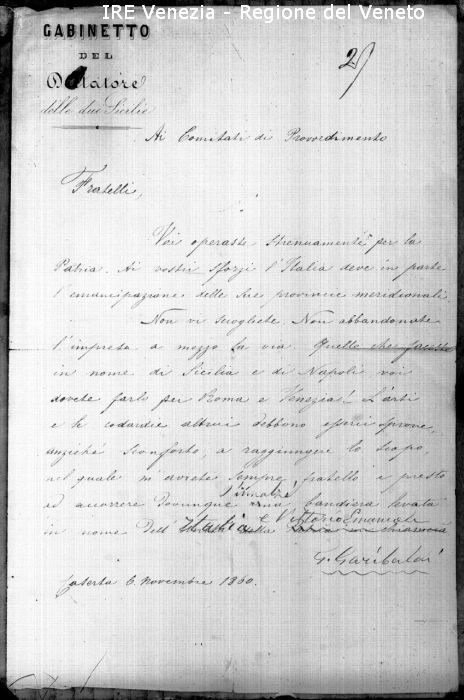 IRE Venezia - Regione del Veneto
GABINETTO
DEL
Dittatore
delle due Sicilie
2
Ai Comitati di Provvedimento
Fratelli,
Voi operaste strenuamente per la
Patria. Ai vostri sforzi l'Italia deve in parte
l'emancipazione delle sue provincie meridionali.
Non vi sciogliete. Non abbandonate
l'impresa a mezzo la via. Quello che faceste
in nome di Sicilia e di Napoli voi
dovete farlo per Roma e Venezia! L'arti
e le codardie altrui debbono esservi sprone,
anziché sconforto, a raggiungere lo scopo,
nel quale m'avrete sempre fratello e presto
ad accorrere dovunque una bandiera levata
in nome dell' Italia e Vittorio Emanuele
G. Garibaldi
Caserta 6. Novembre 1860.